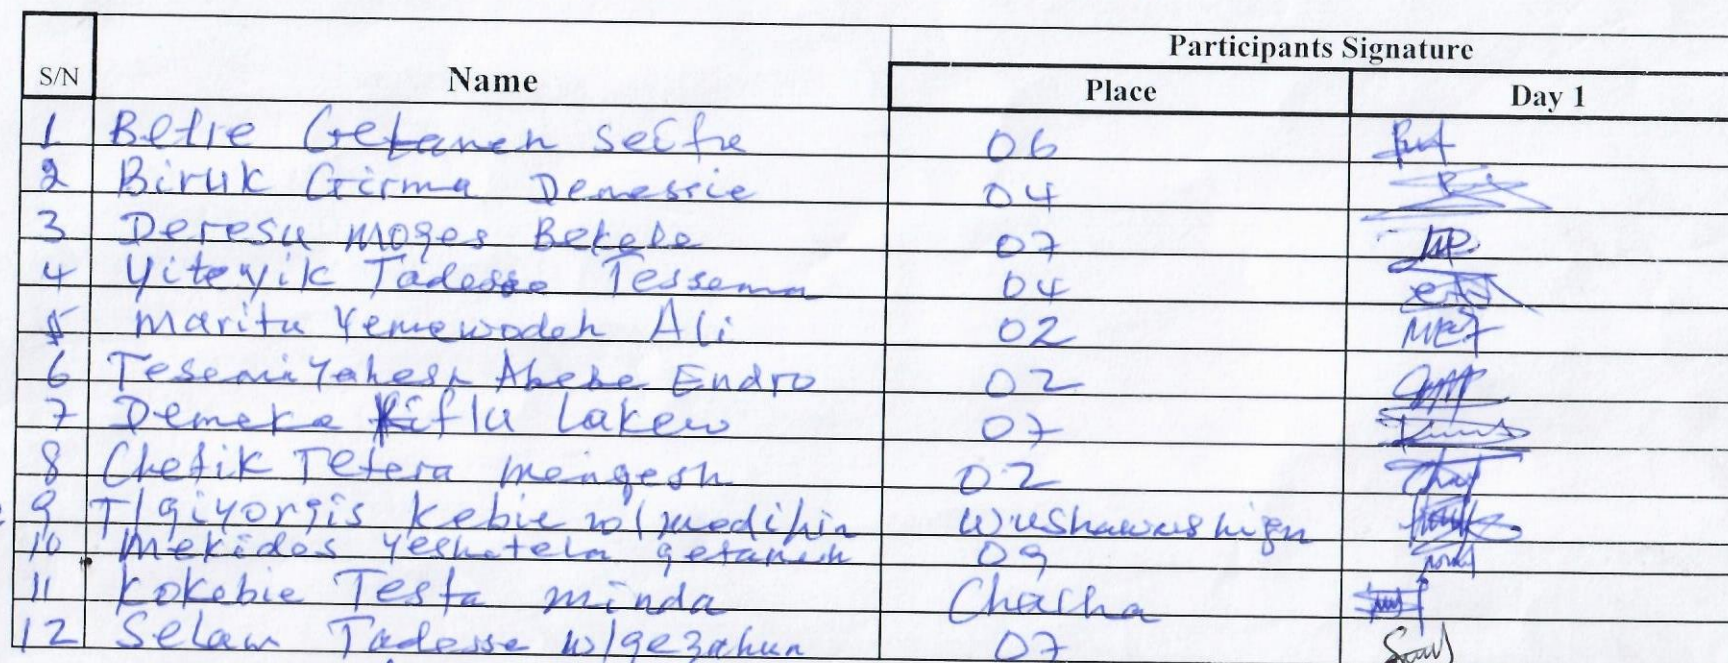 Participants Signature
S/N Name Place Day 1
1 Betre Getaneh Seifu 06
2 Biruk Girma Demessie 04
3 Deresu Moges Bekele 07
4 Yiteyik Tadesse Tessema 04
5 Maritu Yemewodeh Ali 02
6 Abebe Endro 02
7 Demeke Kiflu Lakew 07
8 Chefik Tefera Mengesh 02
9 T/giyorgis Kebie w/medihin Wushawushign
10 Mekides Yeshetela getaneh 09
11 Kokebie Tesfa minda Chacha
12 Selam Tadesse w/gezahun 07